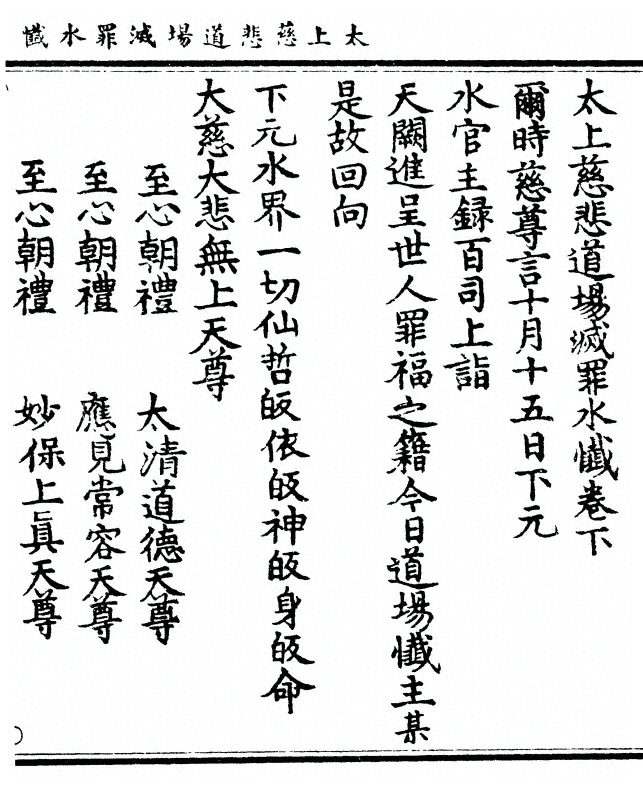 太上慈悲道場滅罪水懺
太上慈悲道場滅罪水懺卷下
爾時慈尊言十月十五日下元
水官主録百司上詣
天闕進呈世人罪福之籍今日道場懺主某
是故回向
下元水界一切仙哲皈依皈神皈身皈命
大慈大悲無上天尊
至心朝禮 太清道德天尊
至心朝禮 應見常容天尊
至心朝禮 妙保上真天尊